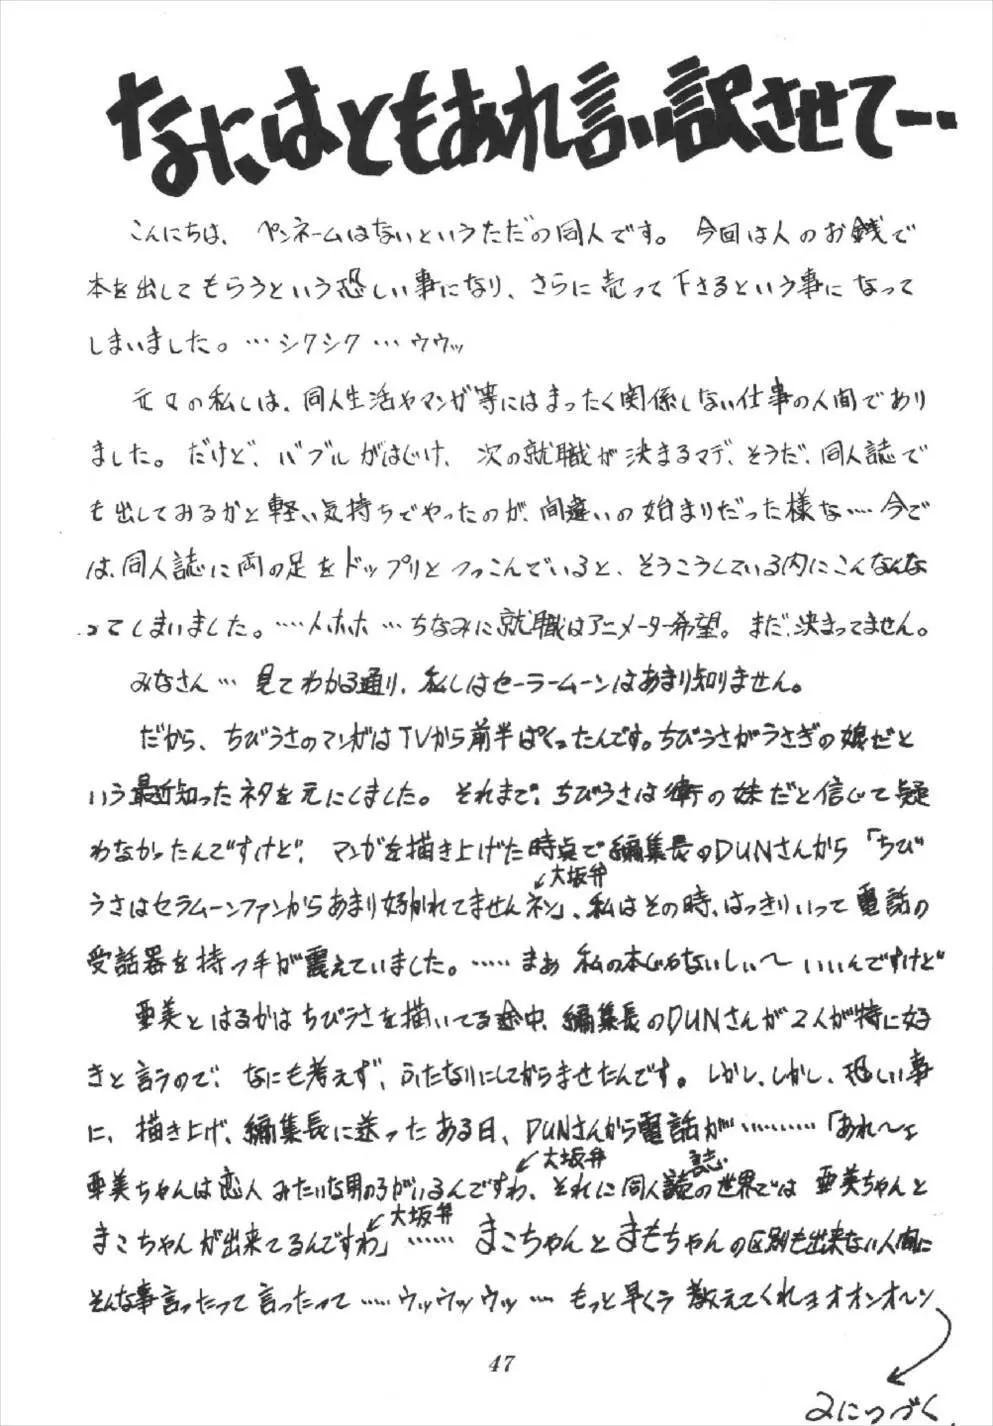 なにはともあれ言い訳させて…
こんにちは、ペンネームはないというただの同人です。今回は人のお銭で
本を出してもらうという恐しい事になり、さらに売って下さるという事になって
しまいました。…シクシク…ウウッ
元々の私しは、同人生活やマンガ等にはまったく関係しない仕事の人間であり
ました。だけど、バブルがはじけ、次の就職が決まるマデ、そうだ、同人誌で
も出してみるかと軽い気持ちでやったのが、間違いの始まりだった様な…今で
は、同人誌に両の足をドップリとつっこんでいると、そうこうしている内にこんなんな
ってしまいました。…‥ホホ…ちなみに就職はアニメーター希望。まだ、決まってません。
みなさん…見てわかる通り、私しはセーラームーンはあまり知りません。
だから、ちびうさのマンガはTVから前半ぱくったんです。ちびうさがうさぎの娘だと
いう最近知ったネタを元にしました。それまで、ちびうさは衛の妹だと信じて疑
わなかったんですけど、マンガを描き上げた時点で編集長のDUNさんから「ちび
大坂弁
うさはセラムーンファンからあまり好かれてませんネン」、私はその時、はっきりいって電話の
受話器を持つ手が震えていました。……まぁ私の本じゃないしぃ〜いいんですけど
亜美とはるかはちびうさを描いてる途中、編集長のDUNさんが2人が特に好
きと言うので、なにも考えず、ふたなりにしてからませたんです。しかし、しかし、恐しい事
に、描き上げ、編集長に送ったある日、DUNさんから電話が…………「あれ〜ェ
大坂弁 誌
亜美ちゃんは恋人みたいな男の子がいるんですわ、それに同人の世界では亜美ちゃんと
大坂弁
まこちゃんが出来てるんですわ」……まこちゃんとまもちゃんの区別も出来ない人間に
そんな事言ったって言ったって…‥ウッウッウッ…もっと早くう教えてくれョオオンオ〜ン
47
2につづく